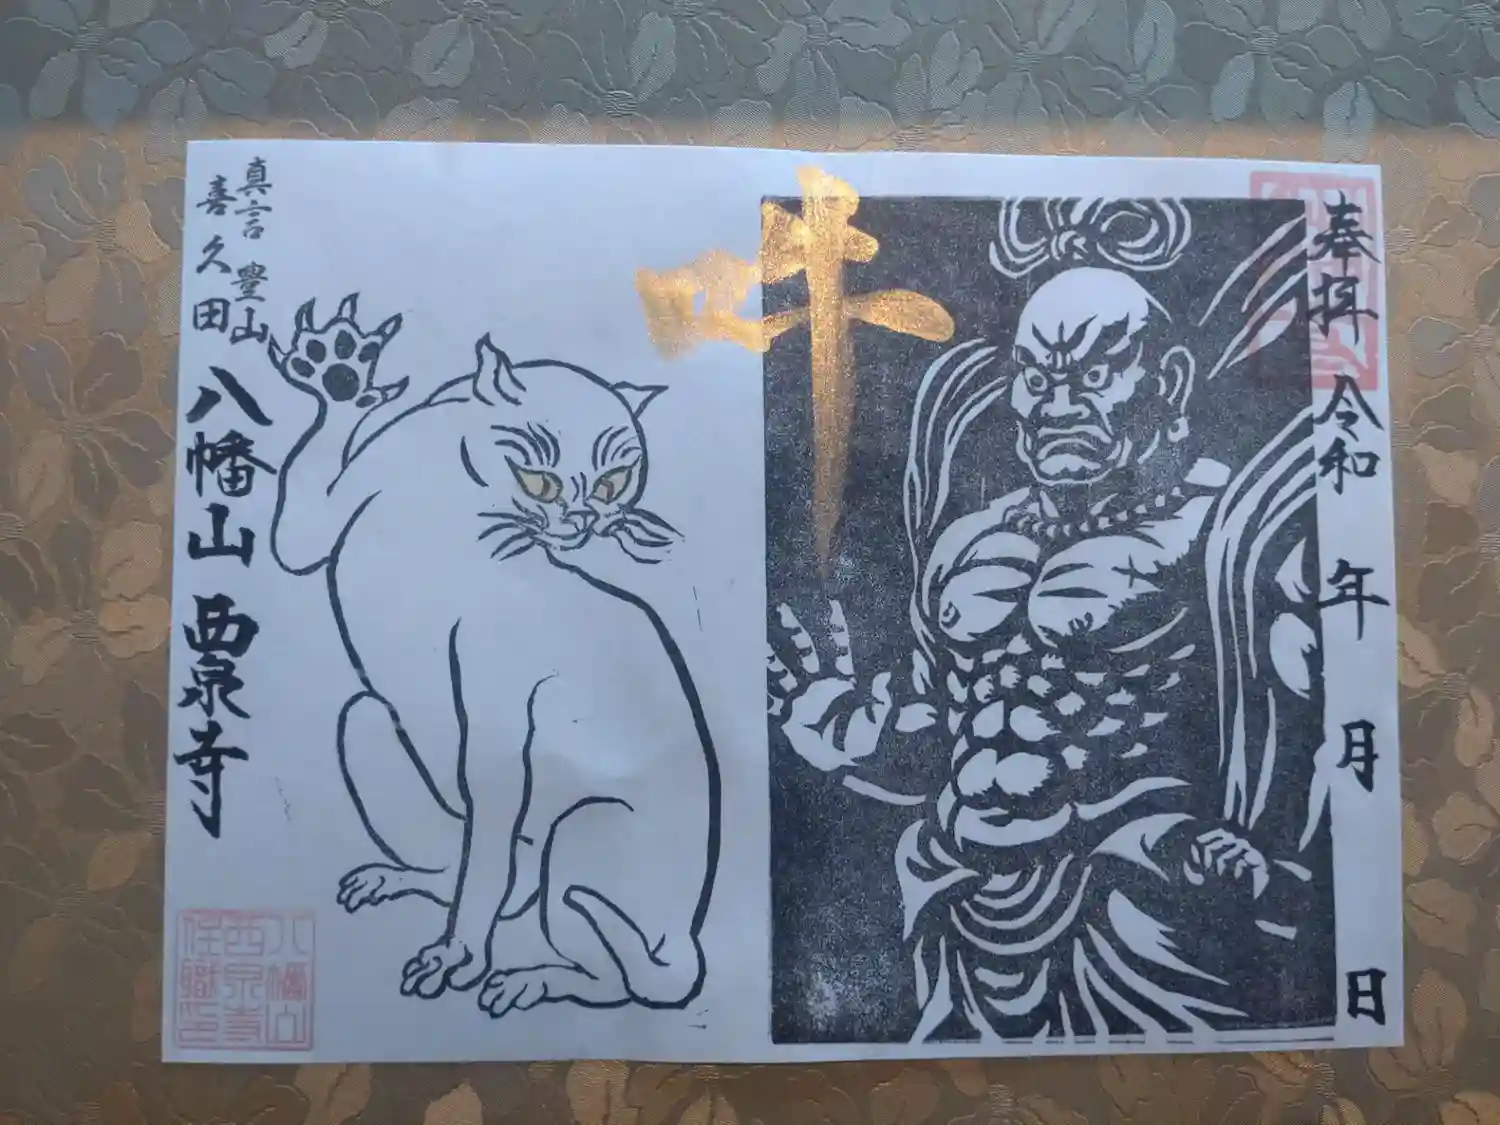 奉拝
令和 年 月 日
吽
真言 豊山
喜久田
八幡山 西泉寺
八幡山
西泉寺
住職印